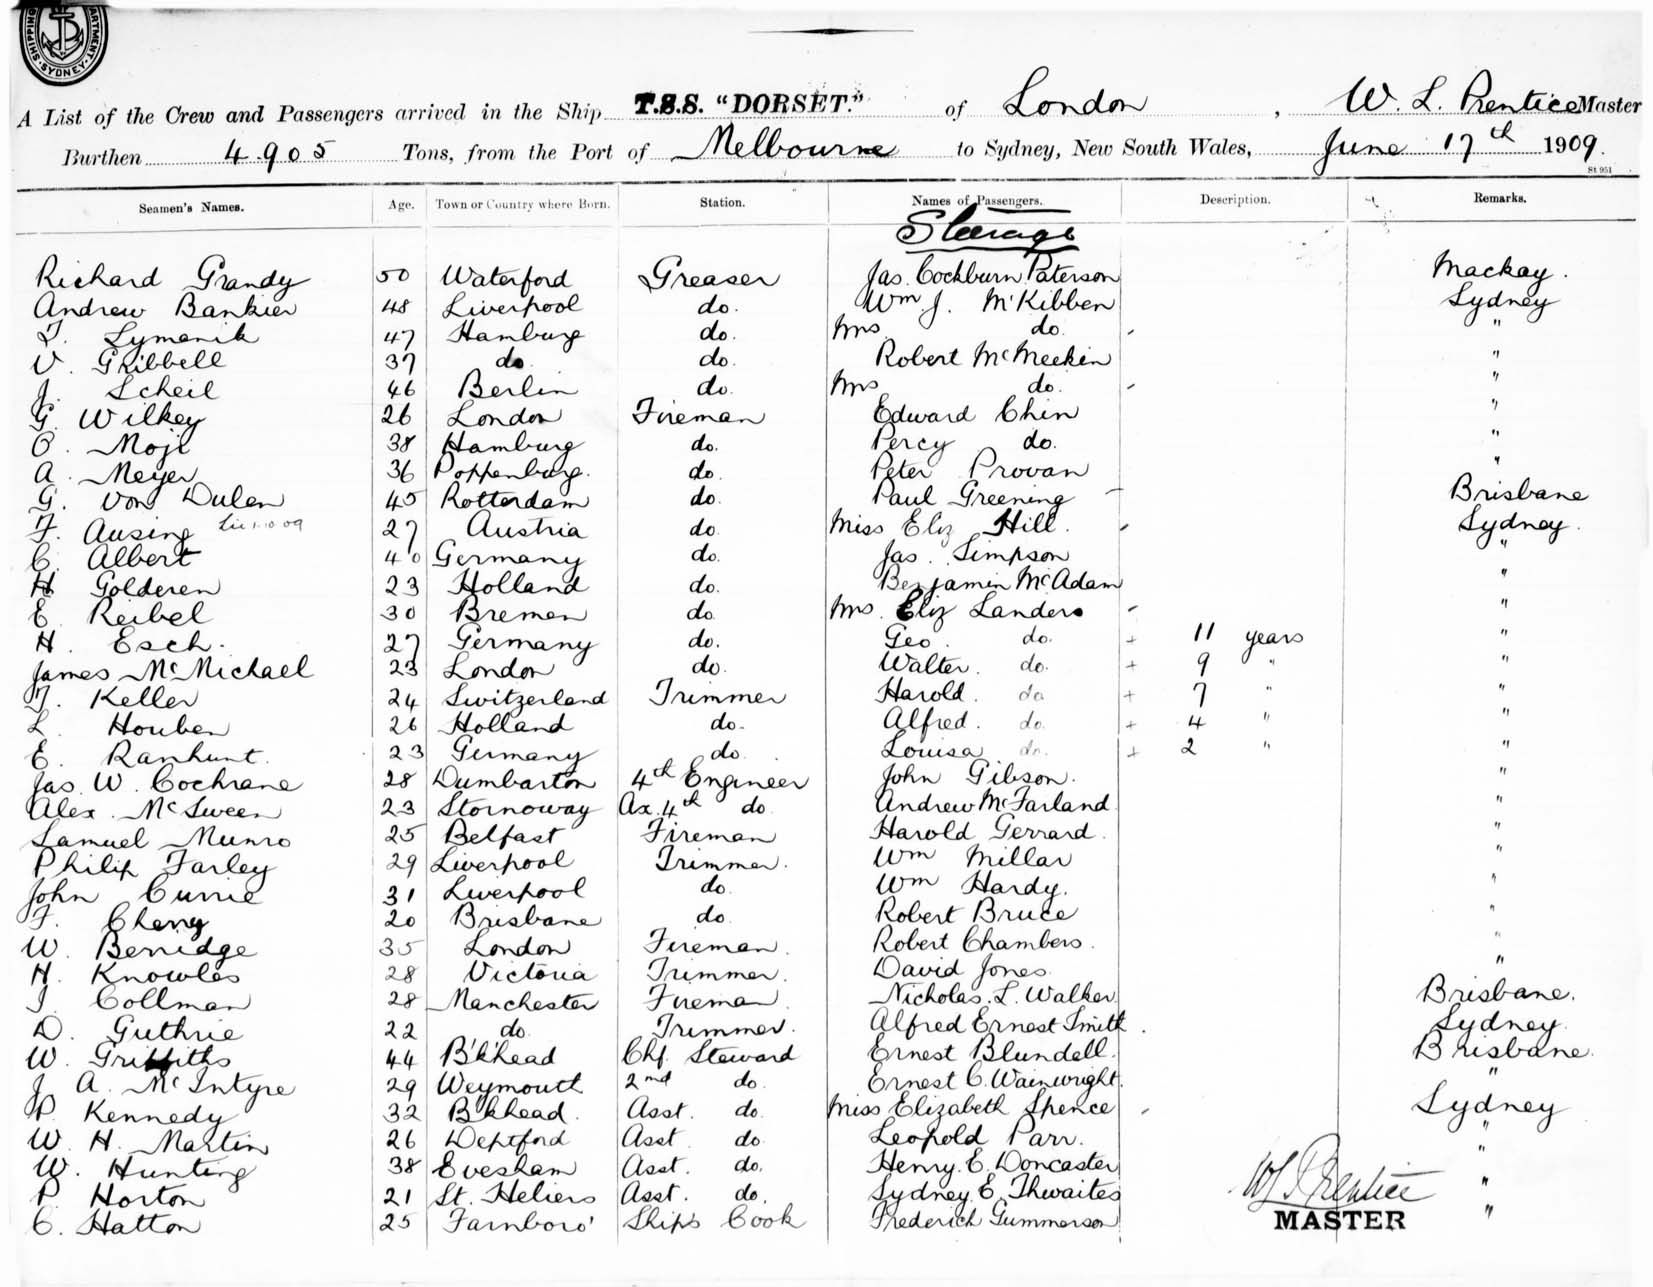 SHIPPING DEPARTMENT. SYDNEY.
A List of the Crew and Passengers arrived in the Ship T.S.S. "DORSET." of London, W. L. Prentice Master
Burthen 4.905 Tons, from the Port of Melbourne to Sydney, New South Wales, June 17th 1909.
St 951
Seamen's Names. Age. Town or Country where Born. Station. Names of Passengers. Description. Remarks.
Steerage
Richard Grandy 50 Waterford Greaser Jas. Cockburn Paterson Mackay.
Andrew Bankier 48 Liverpool do. Wm. J. McKibben Sydney
Lymanik 47 Hamburg do. Mrs do. "
V. Gribbell 37 do. do. Robert McMeekin "
J. Scheil 46 Berlin do. Mrs do. "
G. Wilkey 26 London Fireman Edward Chin "
O. Moje 38 Hamburg do. Percy do. "
A. Meyer 36 Poppenburg. do. Peter Provan "
G. von Dulen 45 Rotterdam do. Paul Greening Brisbane
F. Ausing 27 Austria do. Miss Eliz Hill. Sydney.
C. Albert 40 Germany do. Jas. Simpson "
H Golderen 23 Holland do. Benjamin McAdam "
E. Reibel 30 Bremen do. Mrs. Eliz Landers "
H. Esch. 27 Germany do. Geo. do. + 11 years "
James McMichael 23 London do. Walter. do. + 9 " "
J. Keller 24 Switzerland Trimmer Harold. do + 7 " "
L. Houben 26 Holland do. Alfred. do. + 4 " "
E. Ranhunt. 23 Germany do. Louisa do. + 2 " "
Jas. W. Cochrane 28 Dumbarton 4th Engineer John Gibson. "
Alex. McSween 23 Stornoway Ax. 4th do. Andrew McFarland "
Samuel Munro 25 Belfast Fireman Harold Gerrard. "
Philip Farley 29 Liverpool Trimmer. Wm Millar "
John Currie 31 Liverpool do. Wm Hardy. "
F. Cherry 20 Brisbane do. Robert Bruce "
W. Berridge 35 London Fireman. Robert Chambers. "
H. Knowles 28 Victoria Trimmer. David Jones. "
J. Collman 28 Manchester Fireman. Nicholas. L. Walker. Brisbane.
D. Guthrie 22 do. Trimmer. Alfred Ernest Smith. Sydney.
W. Griffiths 44 B'k'head Chf. Steward Ernest Blundell. Brisbane.
J. A. McIntyre 29 Weymouth 2nd do. Ernest C. Wainwright. "
P. Kennedy 32 B'khead. Asst. do. Miss Elizabeth Spence Sydney
W. H. Martin 26 Deptford Asst. do. Leopold Parr. "
W. Hunting 38 Evesham Asst. do. Henry. E. Doncaster "
P. Horton 21 St. Heliers Asst. do. Sydney. E. Thwaites "
C. Hatton 25 Farnboro' Ship's Cook Frederich Gummerson "
W L Prentice
MASTER